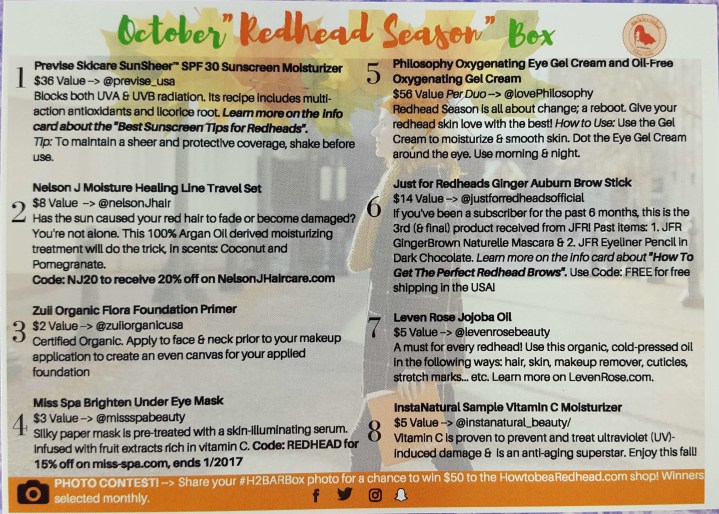 October "Redhead Season" Box
1
Previse Skicare SunSheer™ SPF 30 Sunscreen Moisturizer
$36 Value --> @previse_usa
Blocks both UVA & UVB radiation. Its recipe includes multi-
action antioxidants and licorice root. Learn more on the info
card about the "Best Sunscreen Tips for Redheads".
Tip: To maintain a sheer and protective coverage, shake before
use.
2
Nelson J Moisture Healing Line Travel Set
$8 Value --> @nelsonJhair
Has the sun caused your red hair to fade or become damaged?
You're not alone. This 100% Argan Oil derived moisturizing
treatment will do the trick, in scents: Coconut and
Pomegranate.
Code: NJ20 to receive 20% off on NelsonJHaircare.com
3
Zuii Organic Flora Foundation Primer
$2 Value --> @zuiiorganicusa
Certified Organic. Apply to face & neck prior to your makeup
application to create an even canvas for your applied
foundation
4
Miss Spa Brighten Under Eye Mask
$3 Value --> @missspabeauty
Silky paper mask is pre-treated with a skin-illuminating serum.
Infused with fruit extracts rich in vitamin C. Code: REDHEAD for
15% off on miss-spa.com, ends 1/2017
5
Philosophy Oxygenating Eye Gel Cream and Oil-Free
Oxygenating Gel Cream
$56 Value Per Duo --> @lovePhilosophy
Redhead Season is all about change; a reboot. Give your
redhead skin love with the best! How to Use: Use the Gel
Cream to moisturize & smooth skin. Dot the Eye Gel Cream
around the eye. Use morning & night.
6
Just for Redheads Ginger Auburn Brow Stick
$14 Value --> @justforredheadsofficial
If you've been a subscriber for the past 6 months, this is the
3rd (& final) product received from JFR! Past items: 1. JFR
GingerBrown Naturelle Mascara & 2. JFR Eyeliner Pencil in
Dark Chocolate. Learn more on the info card about "How To
Get The Perfect Redhead Brows". Use Code: FREE for free
shipping in the USA!
7
Leven Rose Jojoba Oil
$5 Value --> @levenrosebeauty
A must for every redhead! Use this organic, cold-pressed oil
in the following ways: hair, skin, makeup remover, cuticles,
stretch marks... etc. Learn more on LevenRose.com.
8
InstaNatural Sample Vitamin C Moisturizer
$5 Value --> @instanatural_beauty/
Vitamin C is proven to prevent and treat ultraviolet (UV)-
induced damage & is an anti-aging superstar. Enjoy this fall!
PHOTO CONTEST! --> Share your #H2BARBox photo for a chance to win $50 to the HowtobeaRedhead.com shop! Winners
selected monthly.